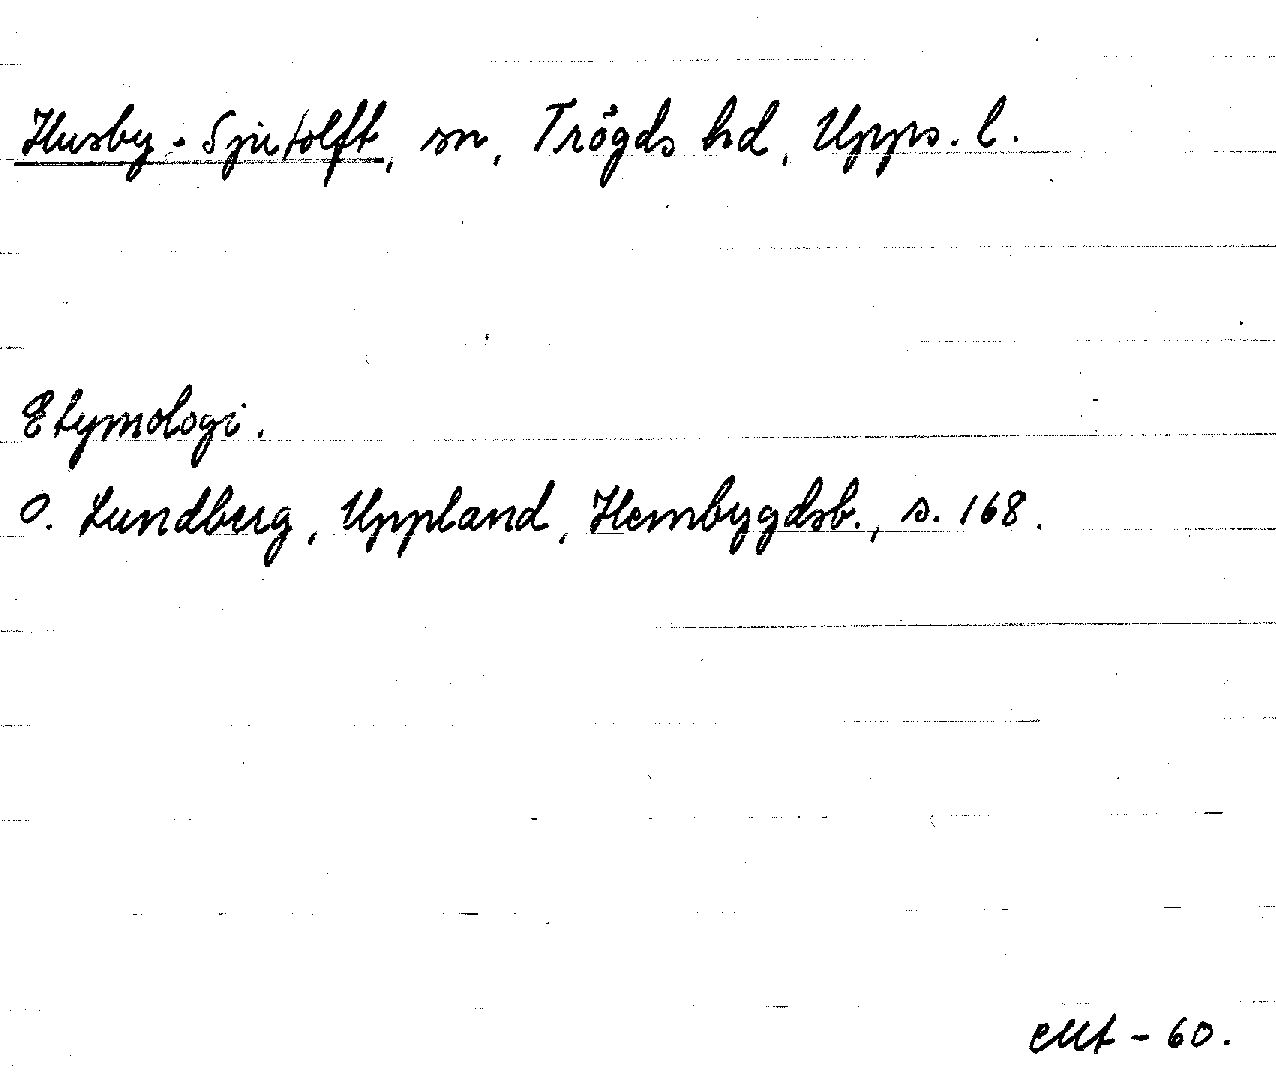 Husby-Sjutolft, sn, Trögds hd, Upps. l.
Etymologi.
O. Lundberg, Uppland, Hembygdsb., s. 168.
-60.